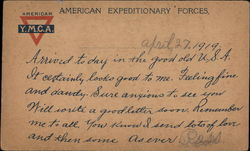 AMERICAN
Y.M.C.A.
AMERICAN EXPEDITIONARY FORCES.
April 27, 1919.
Arrived to day in the good old U.S.A.
It certainly looks good to me. Feeling fine
and dandy. Sure anxious to see you
Will write a good letter soon. Remember
me to all. You know I send lots of love
and then some As ever